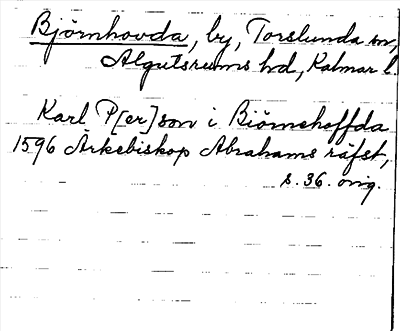 Björnhovda, by, Torslunda sn,
Algutsrums hd, Kalmar l.
Karl P[er]son i Biörnehoffda
1596 Ärkebiskop Abrahams räfst,
s. 36. orig.